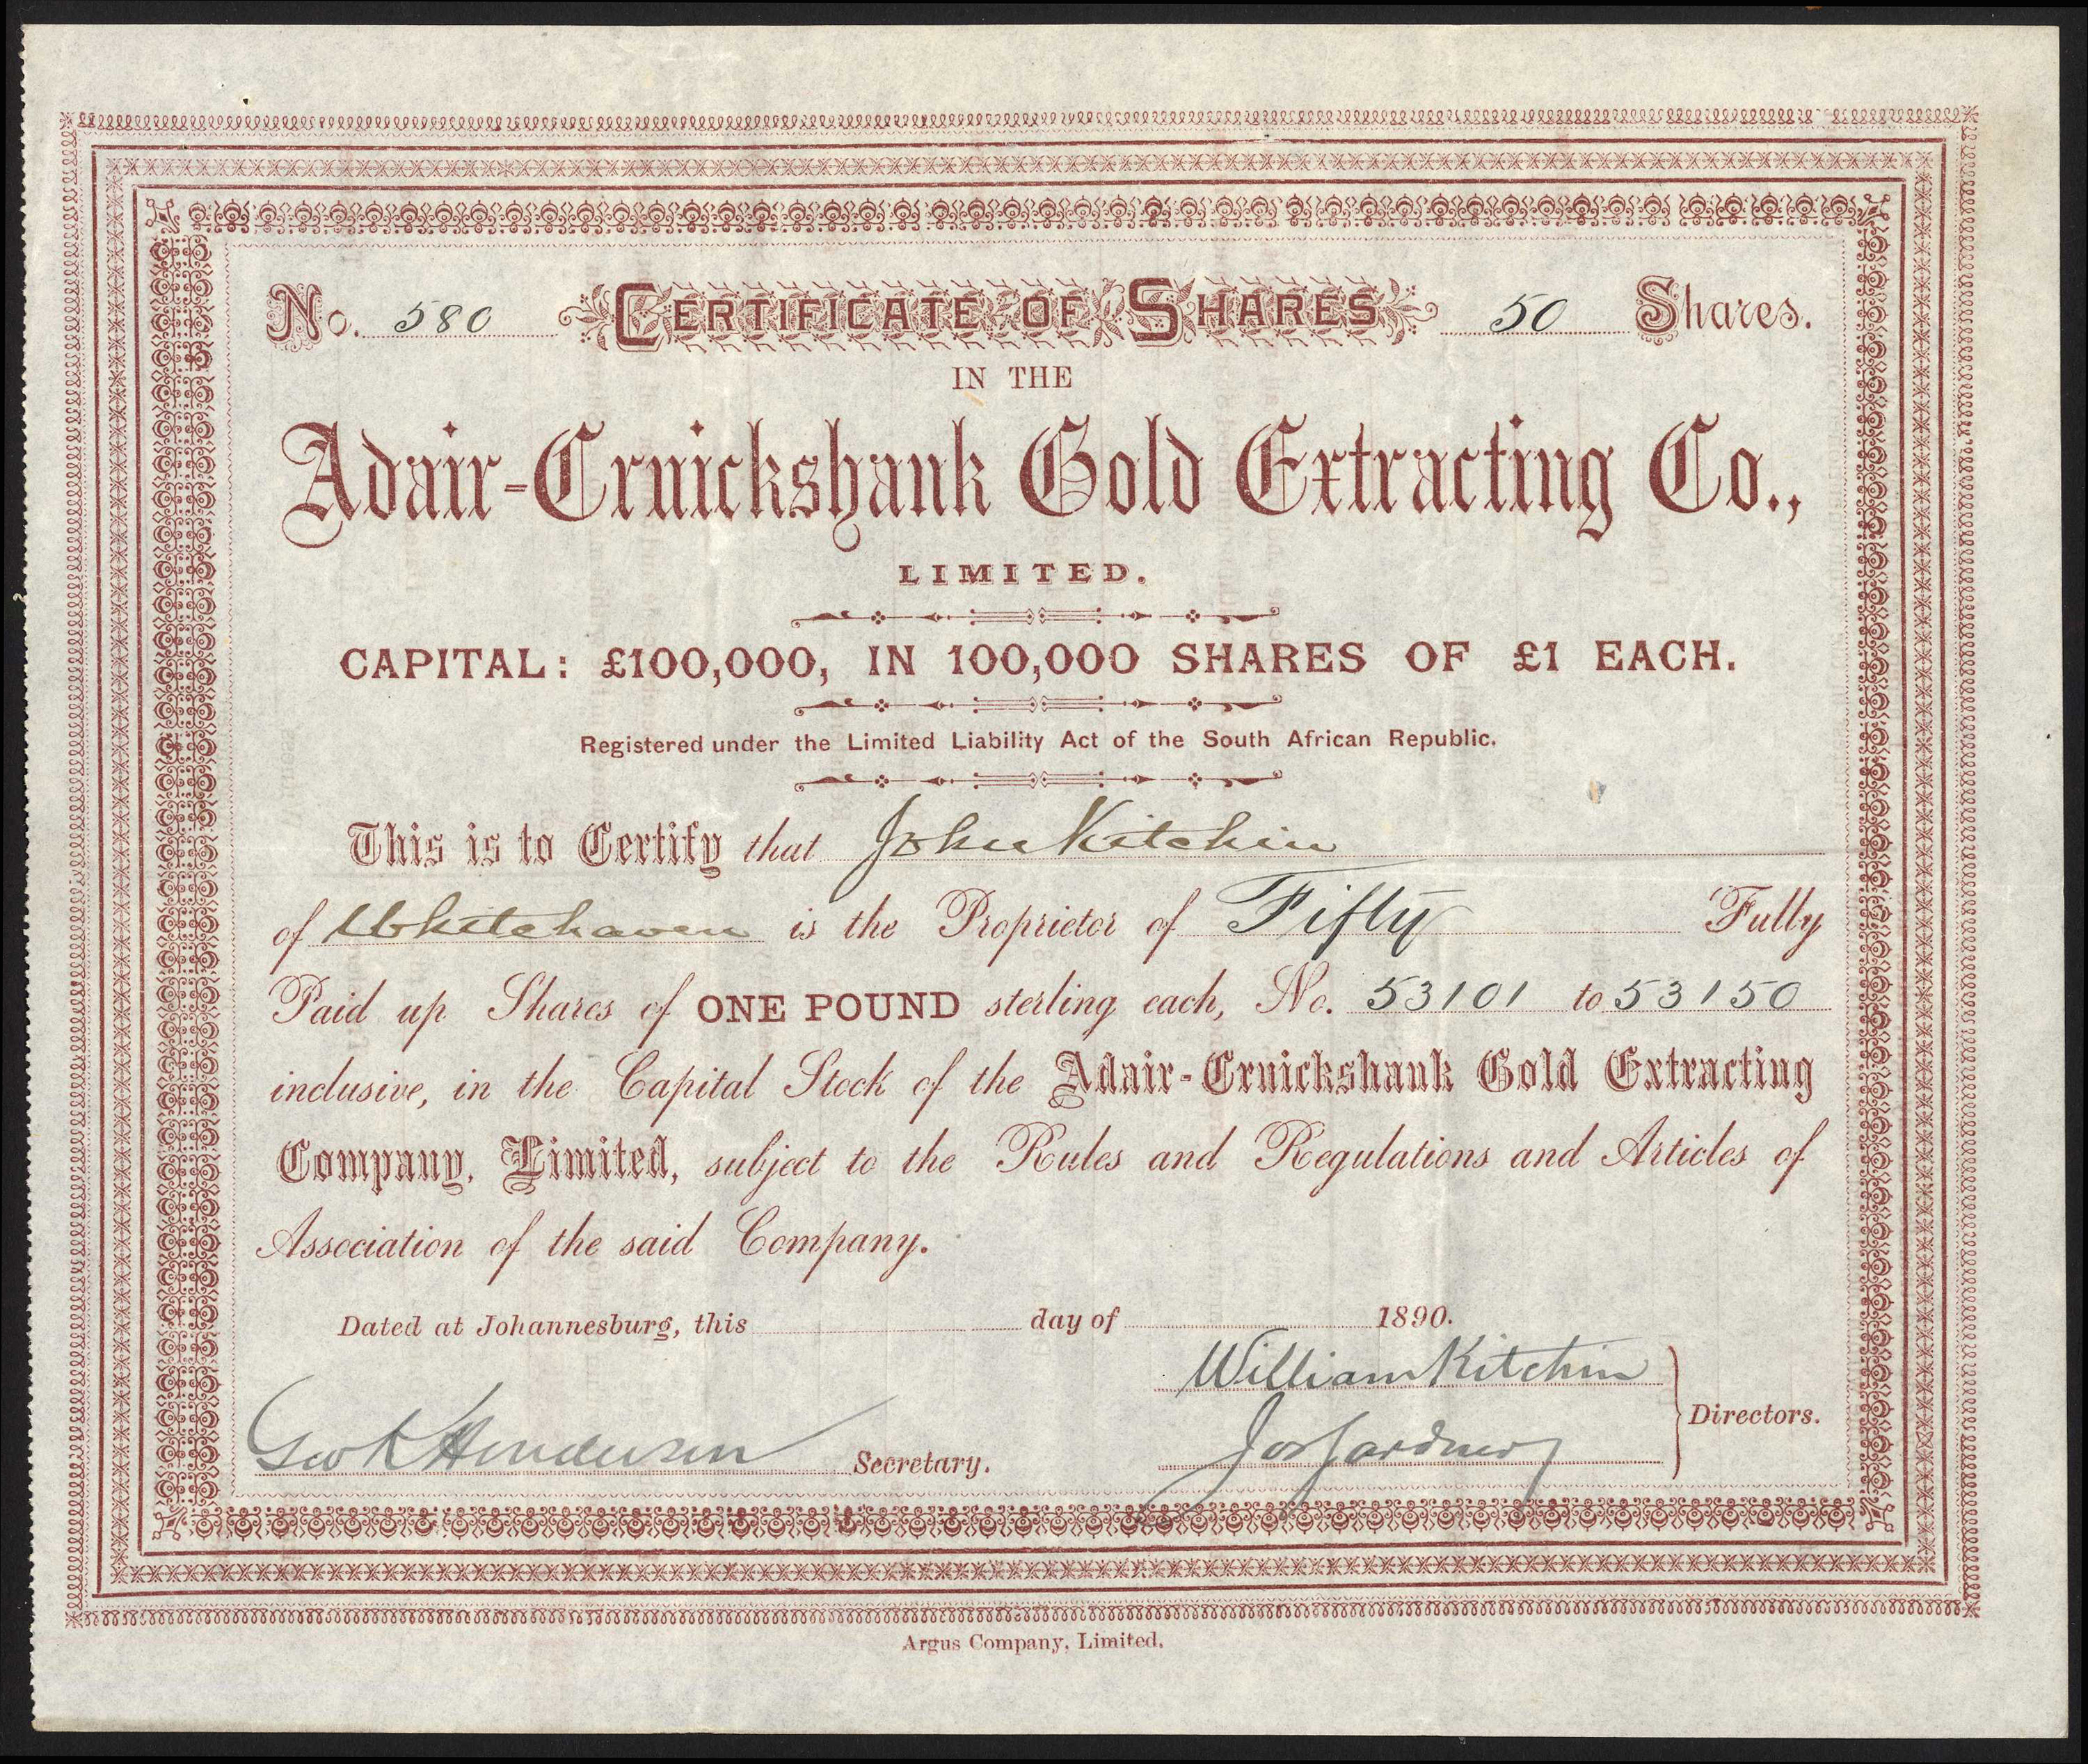 No. 580 CERTIFICATE OF SHARES 50 Shares.
IN THE
Adair-Cruickshank Gold Extracting Co.,
LIMITED.
CAPITAL: £100,000, IN 100,000 SHARES OF £1 EACH.
Registered under the Limited Liability Act of the South African Republic.
This is to Certify that John Kitchin
of Whitehaven is the Proprietor of Fifty Fully
Paid up Shares of ONE POUND sterling each, No. 53101 to 53150
inclusive, in the Capital Stock of the Adair-Cruickshank Gold Extracting
Company, Limited, subject to the Rules and Regulations and Articles of
Association of the said Company.
Dated at Johannesburg, this day of 1890.
William Kitchin
Geo K Henderson Secretary.
Jos Gardner Directors.
Argus Company, Limited.